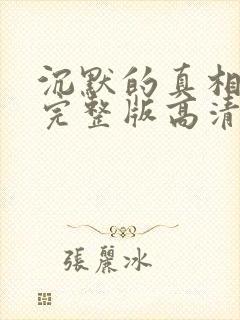 沉默的真相
完整版高清
張麗冰